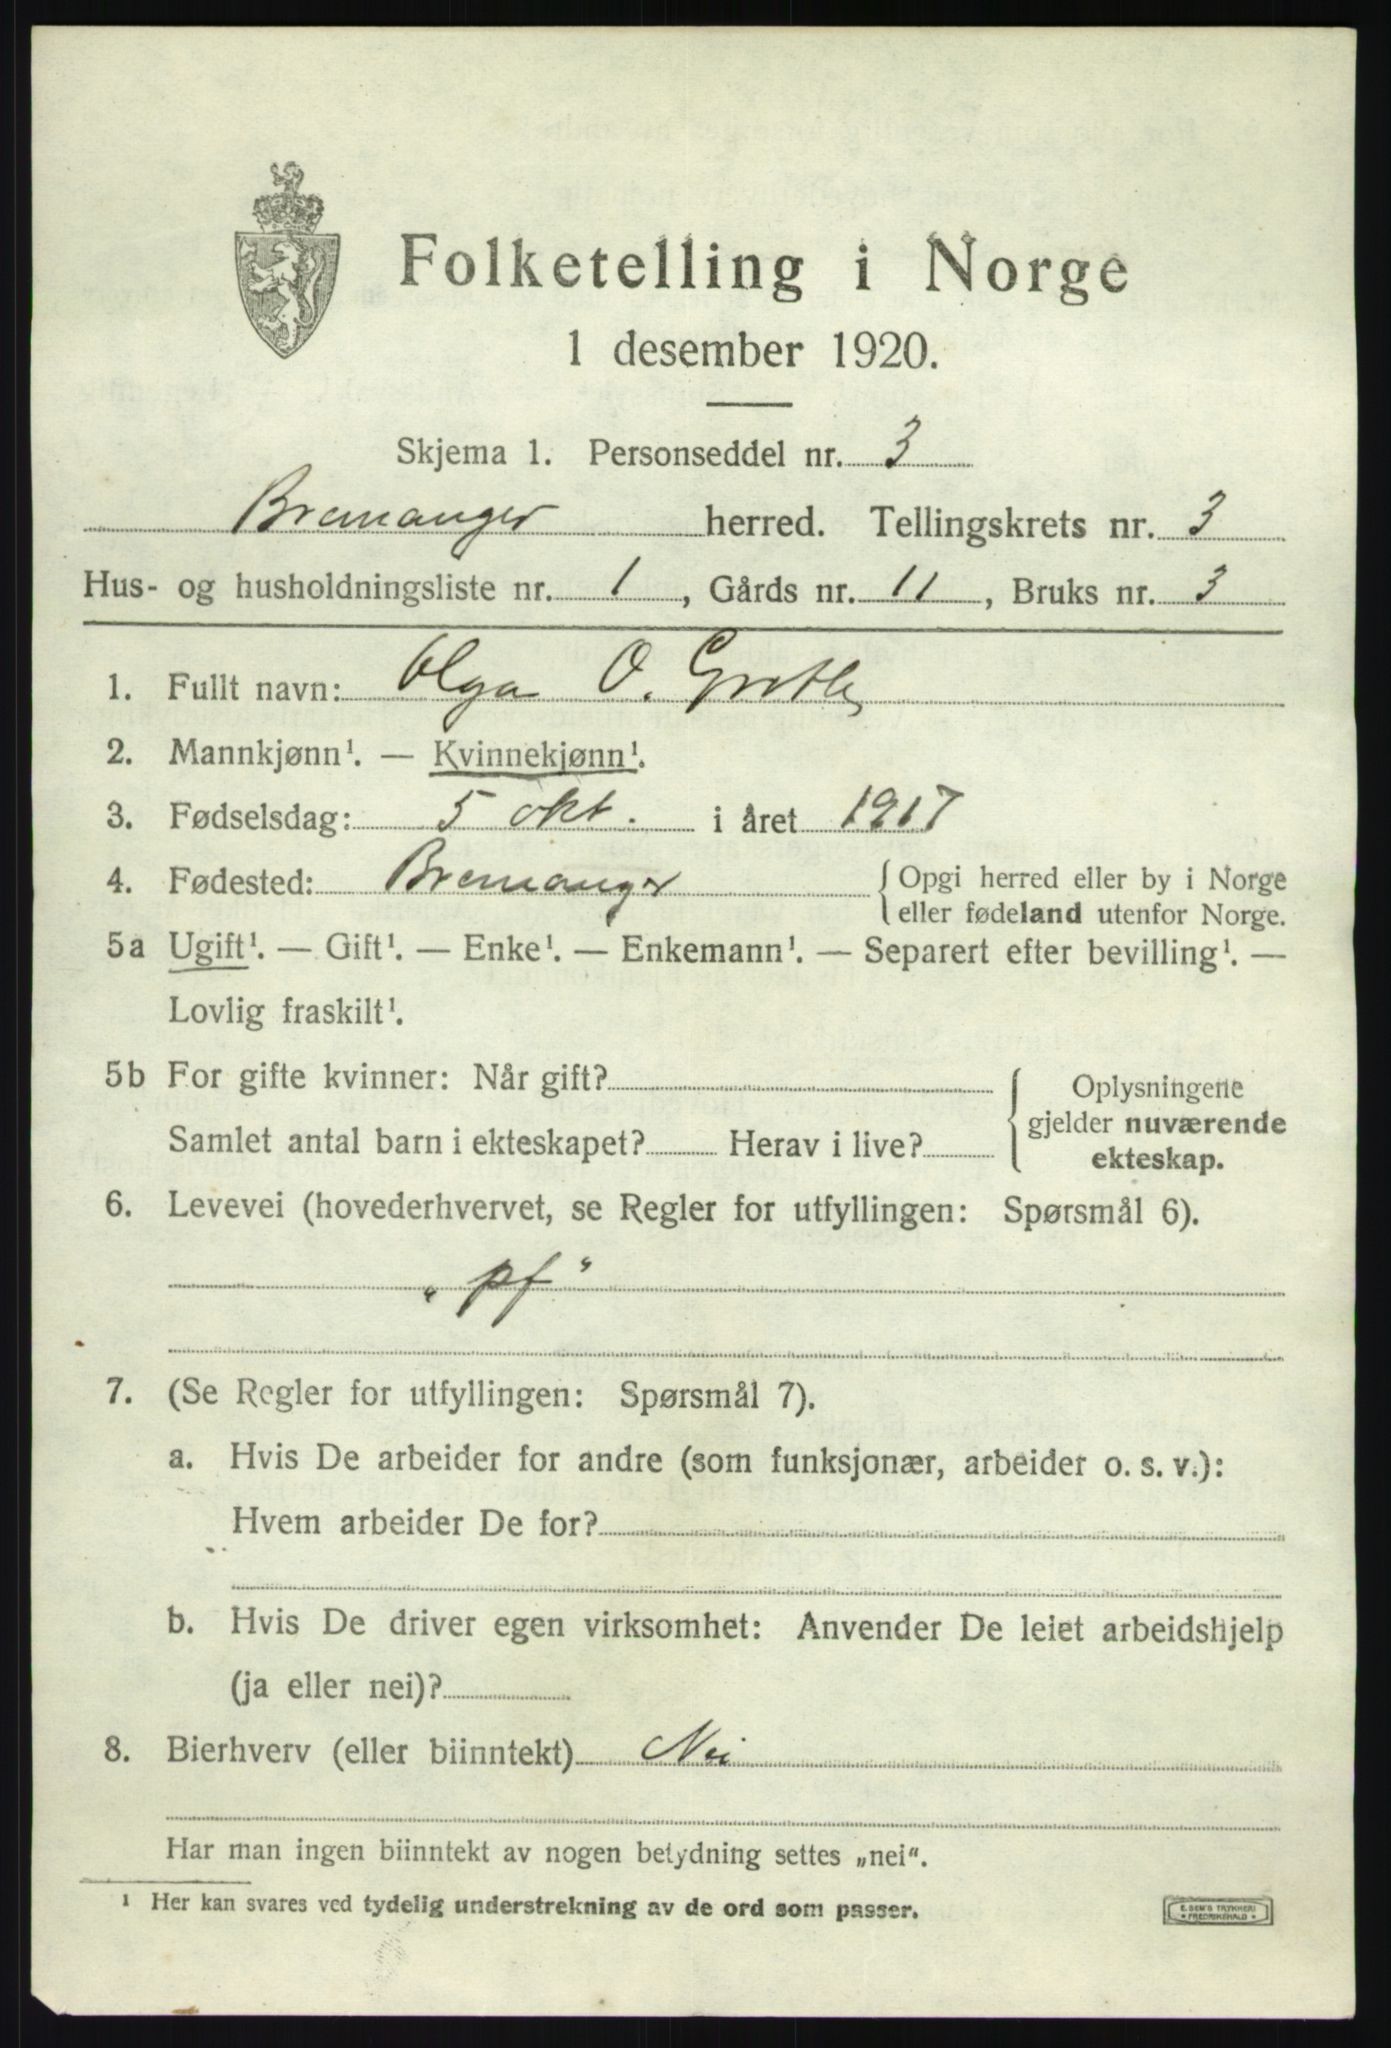 Folketelling i Norge
1 desember 1920.
Skjema 1. Personseddel nr. 3
Bremanger herred. Tellingskrets nr. 3
Hus- og husholdningsliste nr. 1, Gårds nr. 11, Bruks nr. 3
1. Fullt navn: Olga O. Grotle
2. Mannkjønn¹. — Kvinnekjønn¹.
3. Fødselsdag: 5 okt. i året 1917
4. Fødested: Bremanger { Opgi herred eller by i Norge
eller fødeland utenfor Norge.
5a Ugift¹. — Gift¹. — Enke¹. — Enkemann¹. — Separert efter bevilling¹. —
Lovlig fraskilt¹.
5b For gifte kvinner: Når gift? { Oplysningene
gjelder nuværende
Samlet antal barn i ekteskapet? Herav i live?
ekteskap.
6. Levevei (hovederhvervet, se Regler for utfyllingen: Spørsmål 6).
„ pf "
7. (Se Regler for utfyllingen: Spørsmål 7).
a. Hvis De arbeider for andre (som funksjonær, arbeider o. s. v.):
Hvem arbeider De for?
b. Hvis De driver egen virksomhet: Anvender De leiet arbeidshjelp
(ja eller nei)?
8. Bierhverv (eller biinntekt) Nei
Har man ingen biinntekt av nogen betydning settes „nei".
¹ Her kan svares ved tydelig understrekning av de ord som passer.
E. SEM'S TRYKKERI
• FREDRIKSHALD •